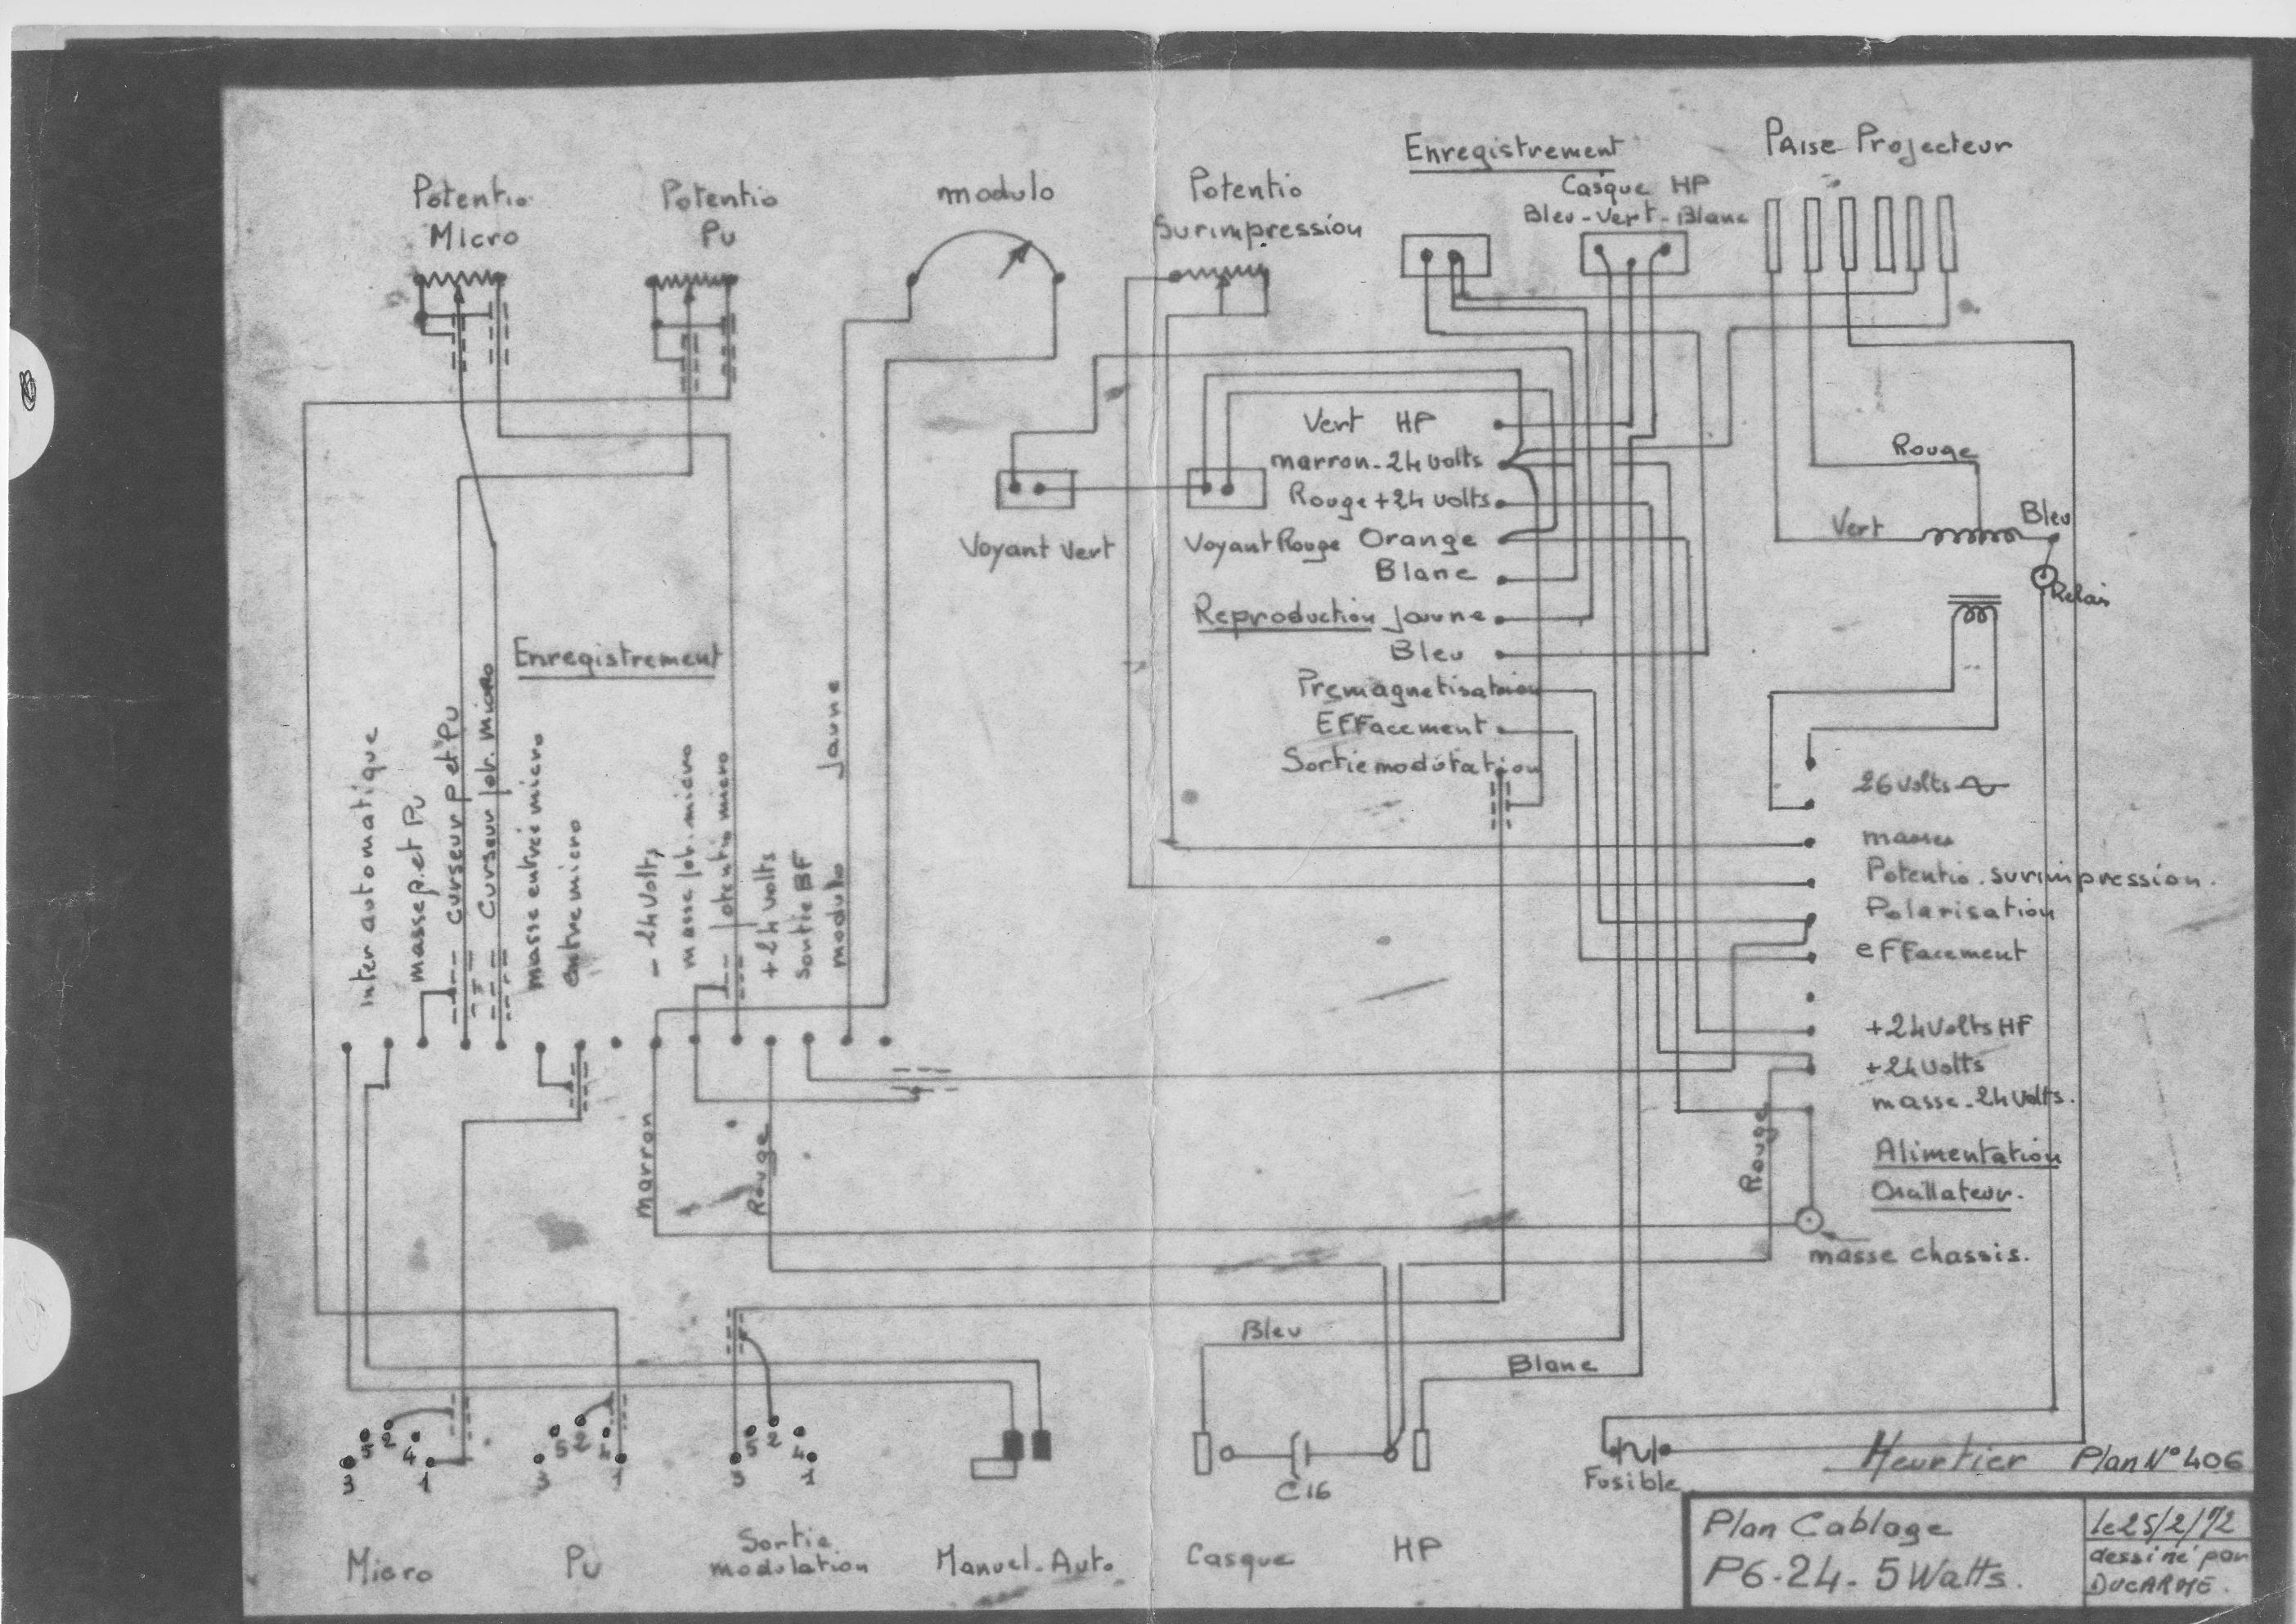 Enregistrement
Prise Projecteur
Potentio
Micro
Potentio
Pu
modulo
Potentio
Surimpression
Casque HP
Bleu-Vert-Blanc
Vert HP
marron-24 volts
Rouge+24 volts
Voyant Vert
Voyant Rouge Orange
Blanc
Reproduction Jaune
Bleu
Premagnetisation
EFFacement
Sortie modulation
Rouge
Vert
Bleu
Relais
Enregistrement
inter automatique
masse p.et Pu
curseur p et Pu
Curseur pot. micro
masse entrée micro
entree micro
- 24 Volts
masse pot. micro
potentio micro
+24 volts
Sortie BF
modulo
Jaune
26 Volts
masse
Potentio. surimpression.
Polarisation
eFFacement
+24 Volts HF
+24 Volts
masse-24 Volts.
Alimentation
Oscillateur.
masse chassis.
marron
Rouge
Rouge
Bleu
Blanc
3 5 2 4 1
3 5 2 4 1
3 5 2 4 1
C16
Fusible
Micro
Pu
Sortie
modulation
Manuel-Auto
Casque
HP
Heurtier Plan N° 406
Plan Cablage
P6-24-5 Watts.
le 25/2/72
dessiné par
DUCARME.